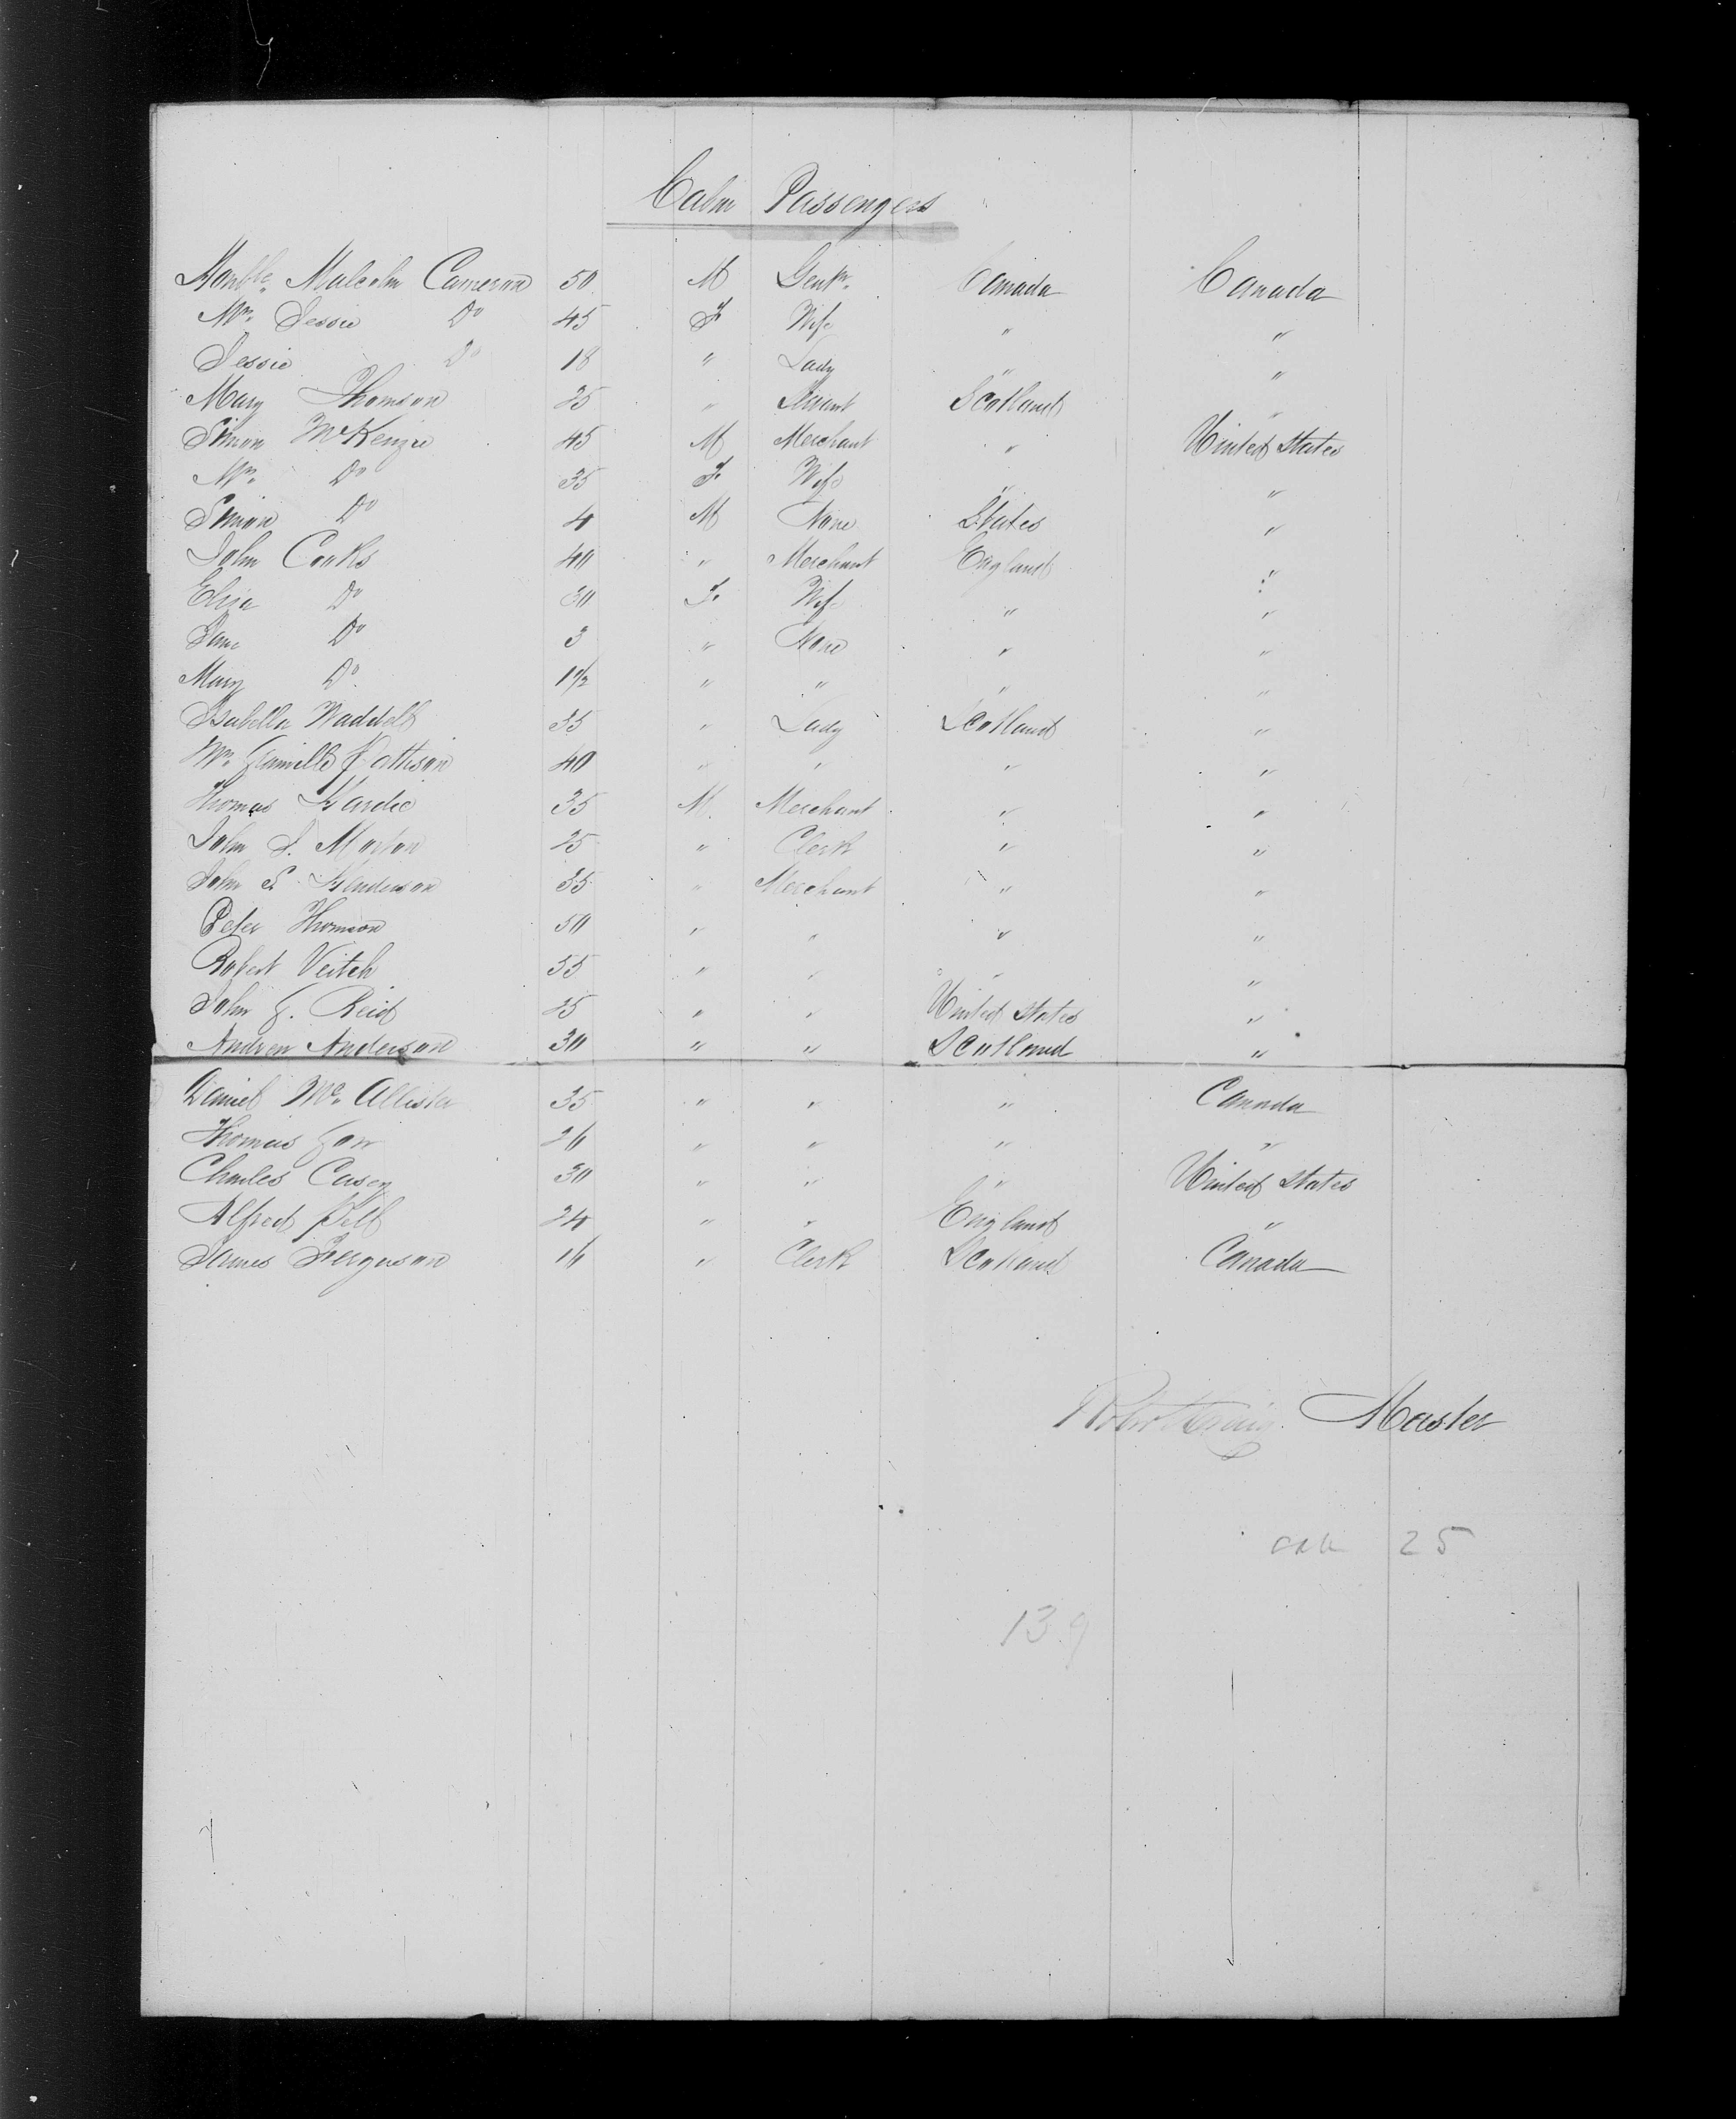 Cabin Passengers
Honble. Malcolm Cameron 50 M Gentn. Canada Canada
Mrs. Jessie Do 45 F Wife " "
Jessie Do 18 " Lady " "
Mary Thomson 25 " Servant Scotland "
Simon McKenzie 45 M Merchant " United States
Mrs. Do 35 F Wife " "
Simon Do 4 M None States "
John Cooks 40 " Merchant England "
Eliza Do 30 F. Wife " "
Jane Do 3 " None " "
Mary Do 1 1/2 " " " "
Isabella Waddell 35 " Lady Scotland "
Mrs. Pattison 40 " " " "
Thomas Hardie 35 M. Merchant " "
John J. Morton 25 " Clerk " "
John S. Henderson 35 " Merchant " "
Peter Thomson 50 " " " "
Robert Veitch 55 " " " "
John G. Reid 25 " " United States "
Andrew Anderson 30 " " Scotland "
Daniel Mc. Allister 35 " " " Canada
Thomas Gow 26 " " " "
Charles Casey 30 " " " United States
Alfred Pell 24 " " England "
James Ferguson 16 " Clerk Scotland Canada
Robert Craig. Master
cab 25
139